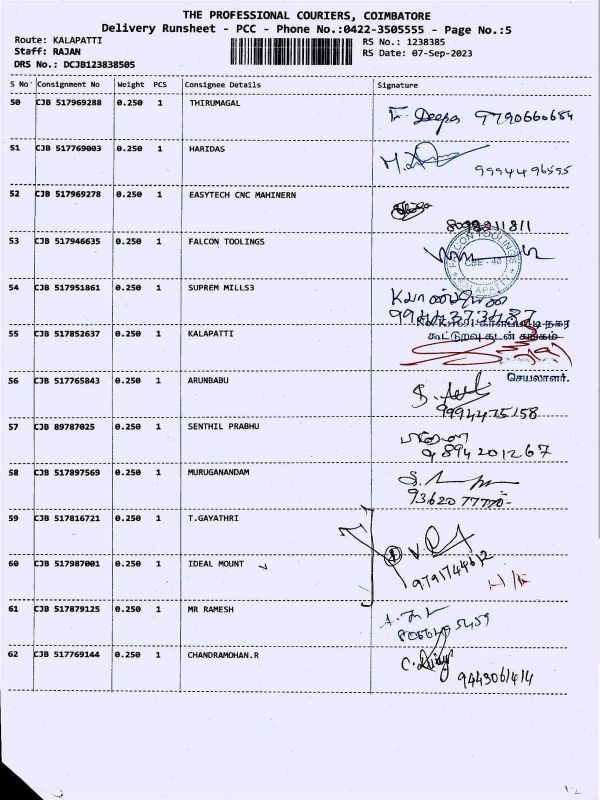 THE PROFESSIONAL COURIERS, COIMBATORE
Delivery Runsheet - PCC - Phone No.:0422-3505555 - Page No.:5
Route: KALAPATTI RS No.: 1238385
Staff: RAJAN RS Date: 07-Sep-2023
DRS No.: DCJB123838505
S No Consignment No Weight PCS Consignee Details Signature
50 CJB 517969288 0.250 1 THIRUMAGAL Deepa 9790660684
51 CJB 517769003 0.250 1 HARIDAS 9994496595
52 CJB 517969278 0.250 1 EASYTECH CNC MAHINERN
53 CJB 517946635 0.250 1 FALCON TOOLINGS FALCON TOOLINGS CBE - 48 KALAPATTI
54 CJB 517951861 0.250 1 SUPREM MILLS3
55 CJB 517852637 0.250 1 KALAPATTI
கூட்டுறவு கடன் சங்கம்
செயலாளர்.
56 CJB 517765843 0.250 1 ARUNBABU
9994475158
57 CJB 89787025 0.250 1 SENTHIL PRABHU
9894201267
58 CJB 517897569 0.250 1 MURUGANANDAM
9362077770-
59 CJB 517816721 0.250 1 T.GAYATHRI
60 CJB 517987001 0.250 1 IDEAL MOUNT
9791744612
61 CJB 517879125 0.250 1 MR RAMESH
62 CJB 517769144 0.250 1 CHANDRAMOHAN.R
9443061414